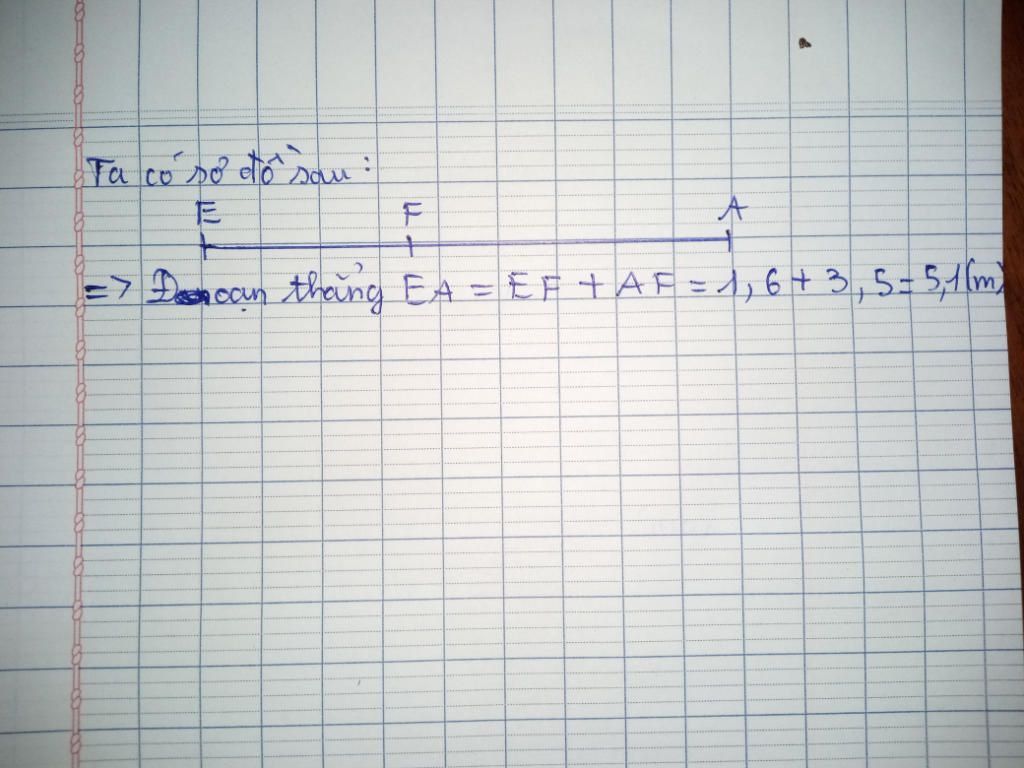 Ta có sơ đồ sau:
E F A
=> Đoạn thẳng EA = EF + AF = 1,6 + 3,5 = 5,1(m)